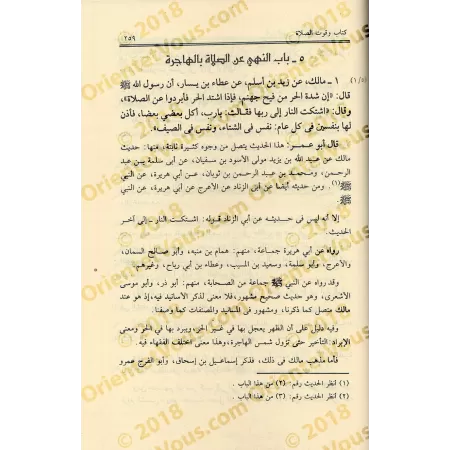 كتاب وقوت الصلاة
٢٥٩
٥ ـ باب النهي عن الصلاة بالهاجرة
(١/٥)
١ ـ مالك، عن زيد بن أسلم، عن عطاء بن يسار، أن رسول الله ﷺ
قال: «إن شدة الحر من فيح جهنم، فإذا اشتد الحر فأبردوا عن الصلاة»،
وقال: «اشتكت النار إلى ربها فقالت: يارب، أكل بعضي بعضا، فأذن
لها بنفسين في كل عام: نفس في الشتاء، ونفس في الصيف».
قال أبو عمر: هذا الحديث يتصل من وجوه كثيرة ثابتة، منها: حديث
مالك عن عبد الله بن يزيد مولى الأسود بن سفيان، عن أبي سلمة بن عبد
الرحمن، ومحمد بن عبد الرحمن بن ثوبان، عن أبي هريرة، عن النبي
ﷺ(١). ومن حديثه أيضا عن أبي الزناد عن الأعرج عن أبي هريرة، عن النبي
ﷺ
إلا أنه ليس في حديثه عن أبي الزناد قوله: اشتكت النار ـ إلى آخر
الحديث.
رواه عن أبي هريرة جماعة، منهم: همام بن منبه، وأبو صالح السمان،
والأعرج، وأبو سلمة، وسعيد بن المسيب، وعطاء بن أبي رباح، وغيرهم.
وقد رواه عن النبي ﷺ جماعة من الصحابة، منهم: أبو ذر، وأبو موسى
الأشعري، وهو حديث صحيح مشهور، فلا معنى لذكر الأسانيد فيه، إذ هو عند
مالك متصل كما ذكرنا، ومشهور في المسانيد والمصنفات كما وصفنا.
وفيه دليل على أن الظهر يعجل بها في غير الحر، ويبرد بها في الحر ومعنى
الإبراد: التأخير حتى تزول شمس الهاجرة، وهذا معنى اختلف الفقهاء فيه.
فأما مذهب مالك في ذلك، فذكر إسماعيل بن إسحاق، وأبو الفرج عمرو
(١) انظر الحديث رقم: (٢) من هذا الباب.
(٢) انظر الحديث رقم: (٣) من هذا الباب.
© 2018
Orientetvous.com